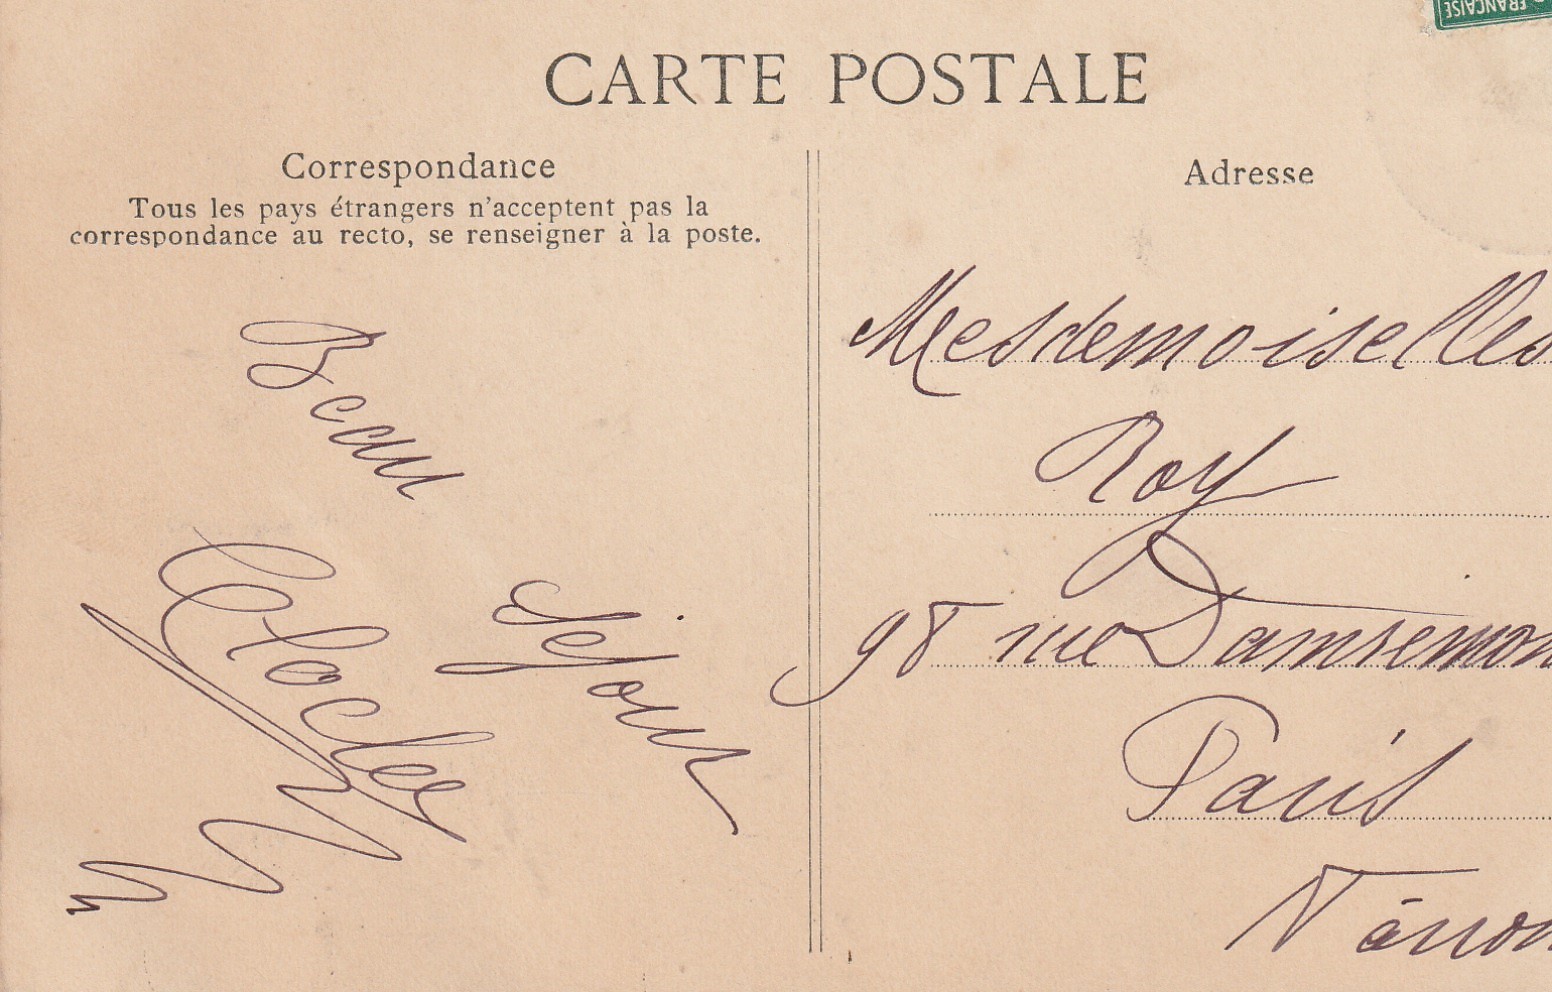 FRANÇAISE
CARTE POSTALE
Correspondance
Tous les pays étrangers n'acceptent pas la
correspondance au recto, se renseigner à la poste.
Beau
Séjour
Adresse
Mesdemoiselles
Roy
98 rue Damremon
Paris